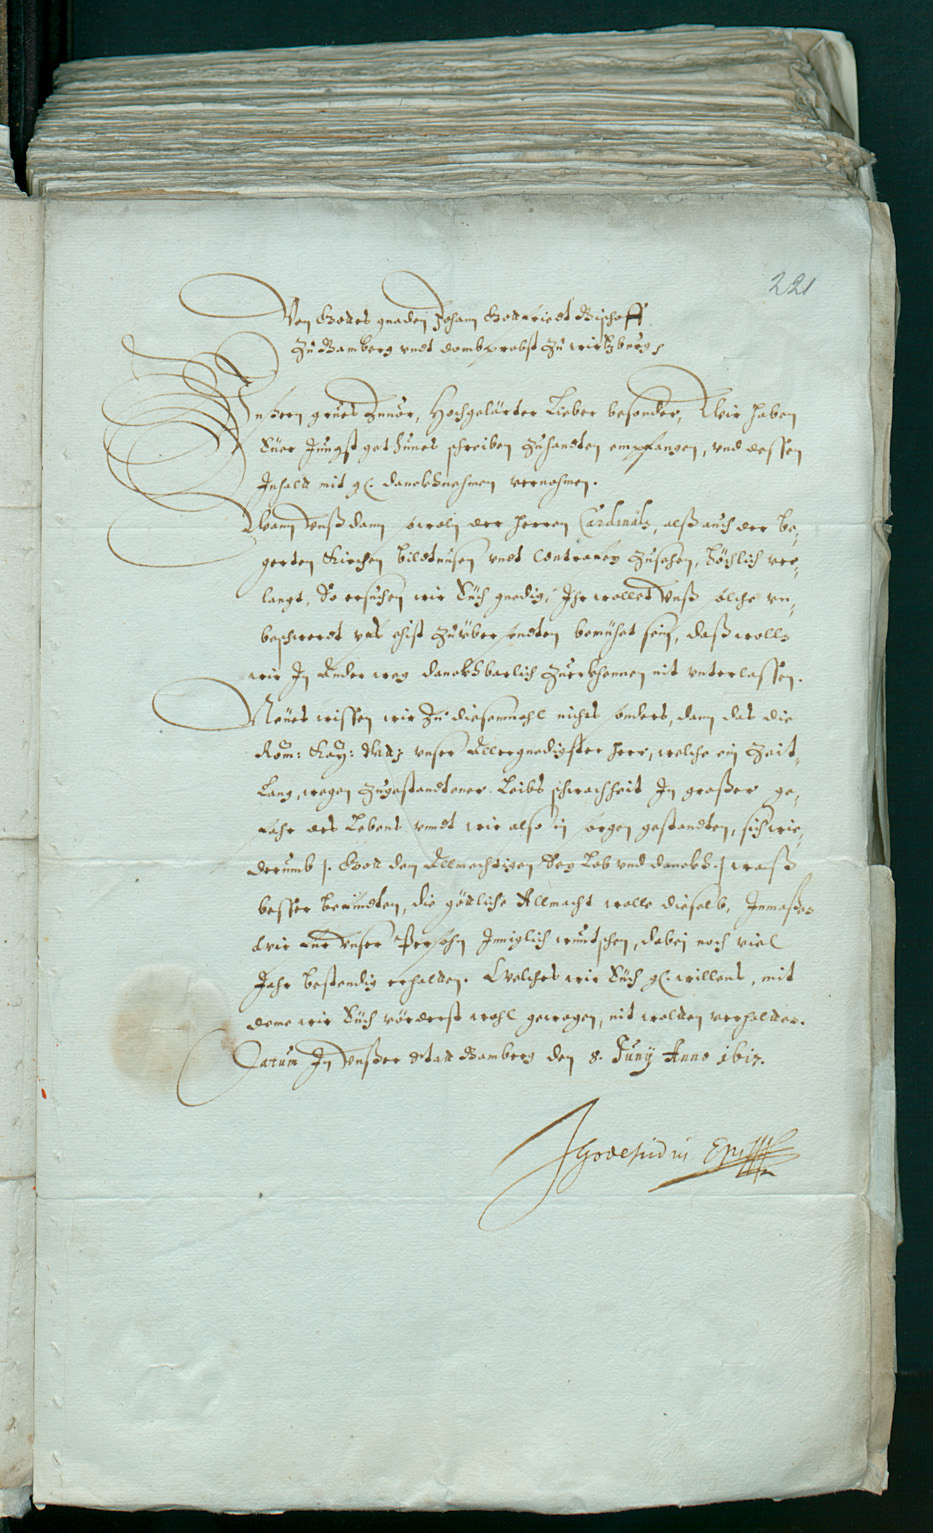 221
Von Gottes gnaden Johann Gottfriedt Bischoff
Zu Bamberg vndt dombprobst zu wirtzburg
Vnsern grues zuuor, Hochgelärter Lieber besonder, Wir haben
Euer Jungst gethunes schreiben zuhandten empfangen, vnd dessen
Inhalt mit g. danckhnehmen vernohmen.
Wann Vnß dann sowoln der herren Cardinäls, alß auch der be„
gerten Kirchen bildtnusen vndt Contrafey zusehen, höchlich ver„
langt, So ersuchen wir Euch gnedig, Ihr wollet Vnß solche vn„
beschwerdt vfs ehist zuüber sendten bemühet sein, daß wolln
wir In Ander weg danckhbarlich zuerkhennen nit vnterlassen.
Neues wissen wir zu diesemmahl nichts sonders, dann das die
Röm: Kay: Matt: vnser Allergnedigster herr, welche ein Zeit„
Lang, wegen zugestandtener Leibs schwachheit In großer ge„
fahr des Lebens vnndt wir also in sorgen gestandten, sich wie„
derumb /: Gott dem Allmechtigen Sey Lob vnd danckh :/ waß
besser befindten, die göttliche Allmacht wolle dieselb, Inmaßen
Wir für Vnser Persohn Inniglich wuntschen, dabei noch viel
Jahr bestendig erhalten. Welches wir Euch g. willens, mit
deme wir Euch vörderst wohl gewogen, nit wolten verhalten.
Datum In Vnßer Statt Bamberg den 8. Junij Anno 1617.
J Godefridus Eps